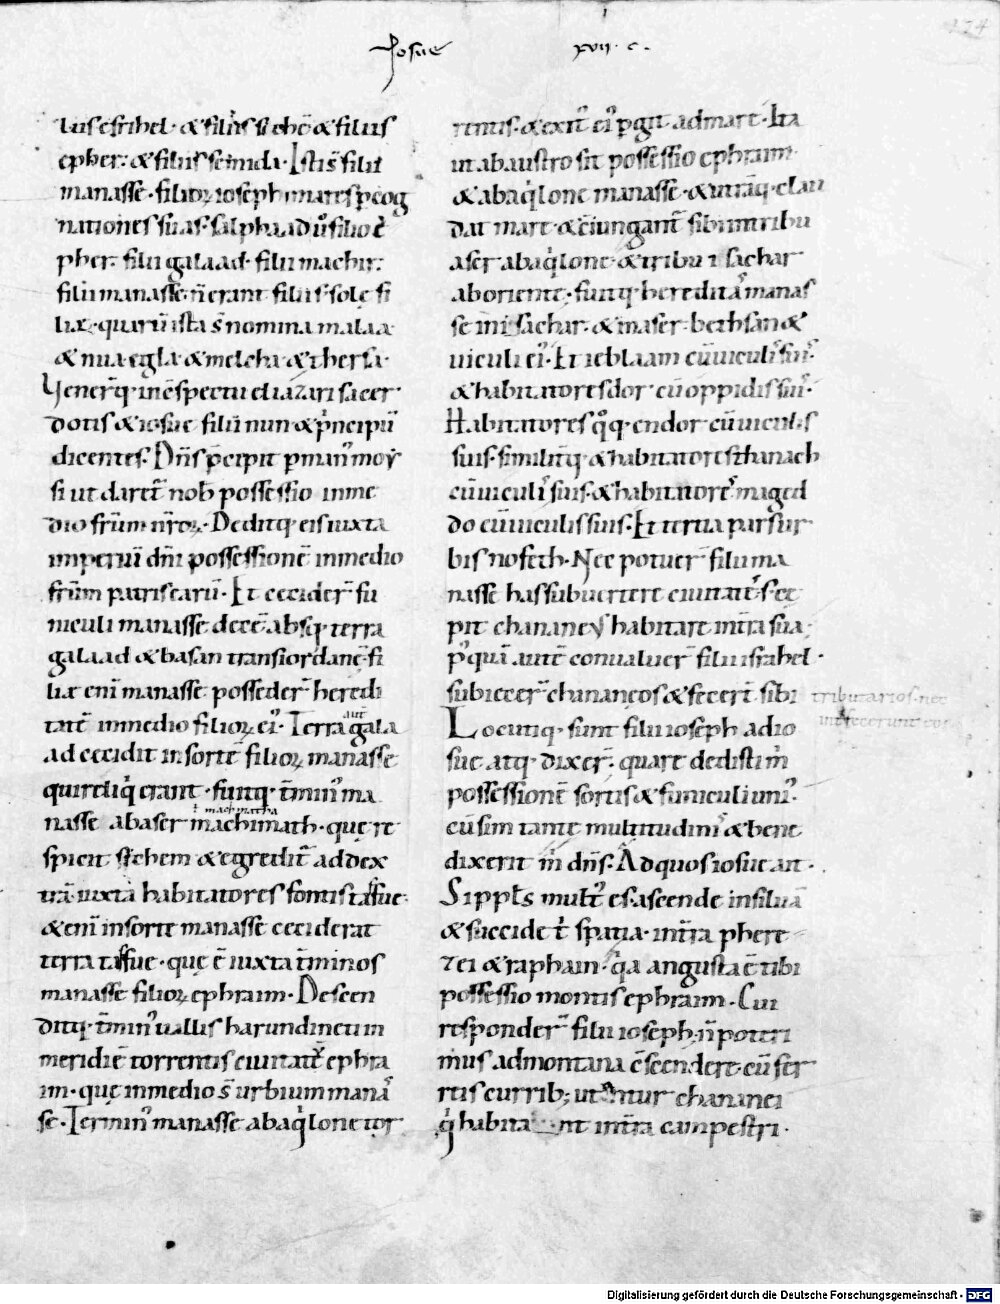 Josue xvii. c.
124
lius esrihel · & filius sichē & filius
epher · & filius semida · Isti s̄ filii
manasse · filioꝝ ioseph mares p cog
nationes suas · salphaad u̓ filio e
pher · filii galaad · filii machir ·
filii manasse · n̄ erant filii · sole fi
liæ · quarū ista s̄ nomina maala
& nua egla & melcha & thersa ·
Ueneꝝq · in ꝯspectu eliazari sacer
dotis & iosue filii nun & pͥncipū
dicentes · Dn̄s p̄cipit p manū moy
si ut daret᷑ nob possessio in me
dio fr̄um nr̄oꝝ · Deditq · eis iuxta
imperiū dn̄i possessionē in medio
fr̄um patris earū · Et cecider̄ fu
niculi manasse decē absq · terra
galaad & basan trans iordanē · fi
liæ eni manasse posseder̄ heredi
tatē in medio filioꝝ ei᷒ · Terra aut̄ gala
ad cecidit in sortē filioꝝ manasse
qui reliqͥ erant · fuitq · t̄min᷒ ma
nasse ab aser machimath · quę re
ꝉ machmatha
spicit sichem & egredit᷑ ad dex
trā iuxta habitatores fontis taffue ·
& eni in sorte manasse ceciderat
terra taffue · quę ē iuxta t̄minos
manasse filioꝝ ephraim · Descen
ditq · t̄min᷒ uallis harundineti in
meridiē torrentis ciuitatē ephra
im · quę in medio s̄ urbium manas
se · Termin᷒ manasse ab aqͥlone tor
rentis · & exit᷒ ei᷒ pgit ad mare · Ita
ut ab austro sit possessio ephraim
& ab aqͥlone manasse · & utrāq · clau
dat mare · & ꝯiungant᷑ sibi in tribu
aser ab aqͥlone · & tribu isachar
ab oriente · fuitq · hereditas manas
se in isachar · & in aser · bethsan &
uiculi ei᷒ · Et ieblaam cū uiculis suis ·
& habitatores dor cū oppidis suis ·
Habitatores qͦq · endor cū uiculis
suis · similitq · & habitatores thanach
cū uiculis suis · & habitatores maged
do cū uiculis suis · Et tertia pars ur
bis nofeth · Nec potuer̄ filii ma
nasse has subuertere ciuitates · s; ce
pit chanane᷒ habitare in tr̄a sua ·
Pͦquā autē conualuer̄ filii israhel ·
subiecer̄ chananeos & fecer̄t sibi
tributarios · nec
interfecerunt eos
Locutiq · sunt filii ioseph ad io
sue atq · dixer̄ · quare dedisti m̄
possessionē sortis & funiculi uni᷒ ·
cū sim tantę multitudinis & bene
dixerit m̄ dn̄s · Ad quos iosue ait ·
Si pplꝰs mult᷒ es · ascende in siluā
& succide tͥ spatia · in tr̄a phere
zei & raphaim · qͥa angusta ē tibi
possessio montis ephraim · Cui
responder̄ filii ioseph · n̄ poteri
mus ad montana ꝯscendere · cū fer
reis currib; utantur chananei
qͥ habitant in tr̄a campestri ·
Digitalisierung gefördert durch die Deutsche Forschungsgemeinschaft - DFG